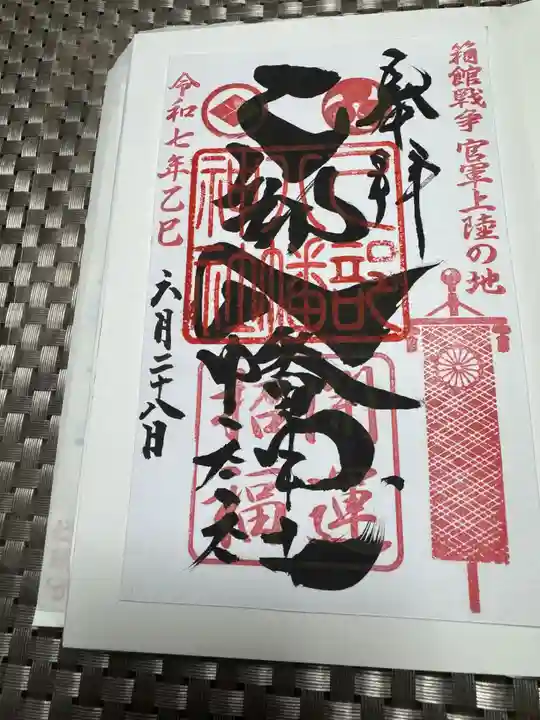 箱館戦争 官軍上陸の地
奉拝
乙部八幡神社
乙部八幡神社
開運招福
令和七年乙巳
六月二十八日